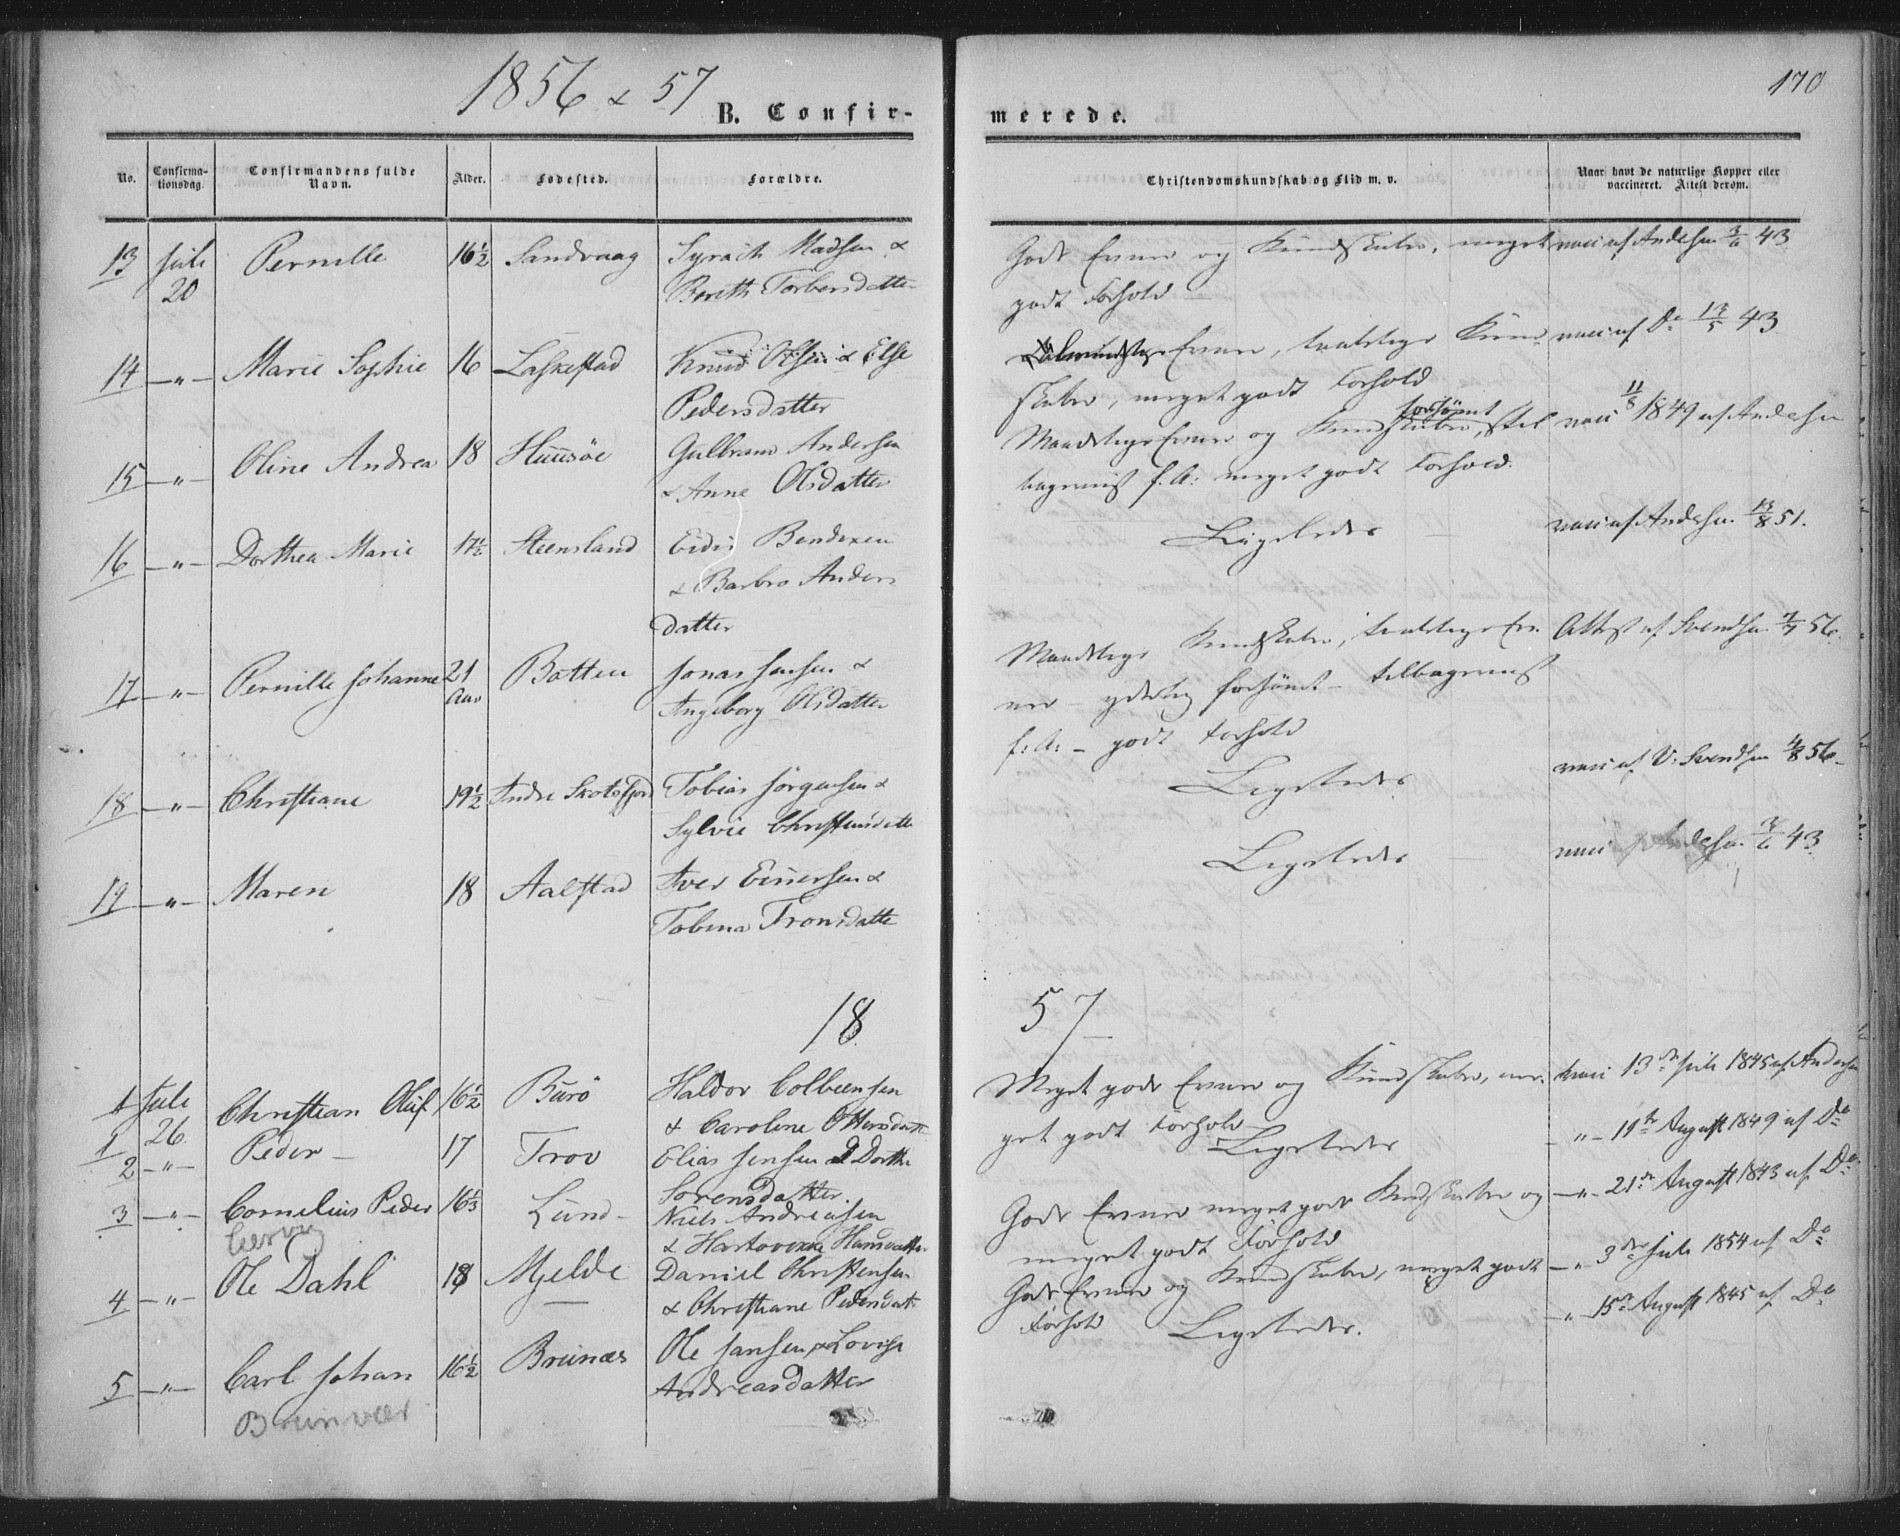 1856 & 57
170
B. Confir-
merede.
No.
Confirma-
tionsdag.
Confirmandens fulde
Navn.
Alder.
Fødested.
Forældre.
Christendomskundskab og Flid m. v.
Naar havt de naturlige Kopper eller
vaccineret. Attest derom.
13 Juli Pernille 16½ Sandvaag Syrach Madsen &
20 Bereth Torbersdatter
Gode Evner og Kundskaber, meget
godt Forhold
vacc: af Andersen 3/6 43
14 —"— Marie Sophie 16 Laskestad Knud Olsen & Else
Pedersdatter
Evner, taalelige Kund
skaber, meget godt Forhold
vacc: af Do 13/5 43
15 —"— Oline Andrea 18 Huusöe Gulbran Andersen
& Anne Olsdatter
Maadelige Evner og Kundskaber, forsömt til
bageviist f. A: meget godt Forhold.
vacc 11/8 1849 af Andersen
16 —"— Dorthea Marie 17½ Steensland Eidis Bendixen
& Barbro Anders
datter
Ligeledes
vacc: af Andersen 13/8 51.
17 —"— Pernille Johanne 21 Botten Jonas Jensen &
Aar Ingeborg Olsdatter
Maadelige Kundskaber, taalelige Ev-
ner - yderlig forsömt - tilbageviist
f: A: - godt Forhold
Attest af Svendsen 7/7 56.
18 —"— Christiane 19½ Indre Skotsfjord Tobias Jörgensen &
Sylvie Christensdatter
Ligeledes
vacc: af V: Svendsen 4/8 56
19 —"— Maren 18 Aalstad Iver Einersen &
Tobina Tronsdatter
Ligeledes
vacc Andersen 3/6 43
18
57
1 Juli Christian Oluf 16½ Burö Haldor Colbeensen
26 & Caroline Ottersdatter
1
Meget gode Evner og Kundskaber, me-
get godt Forhold
vacc 13de Juli 1845 af Andersen
2 —"— Peder — 17 Trov Elias Jensen & Dorthe
Sorensdatter
Ligeledes
—"— 11te August 1849 af Do
3 —"— Cornelius Peder 16½ Lund — Niels Andreasen
& Hartvikke Hansdatter
Gode Evner meget gode Kundskaber og
meget godt Forhold
—"— 21de August 1843 af Do
4 —"— Ole Dahl 18 Mjelde Daniel Christensen
& Christiane Pedersdatter
Gode Evner og Kundskaber, meget godt
Forhold
—"— 3die Juli 1854 af Do
5 —"— Carl Johan 16½ Brunæs Ole Jansen & Lovise
Brunvær Andreasdatter
Ligeledes.
—"— 15de August 1845 af Do